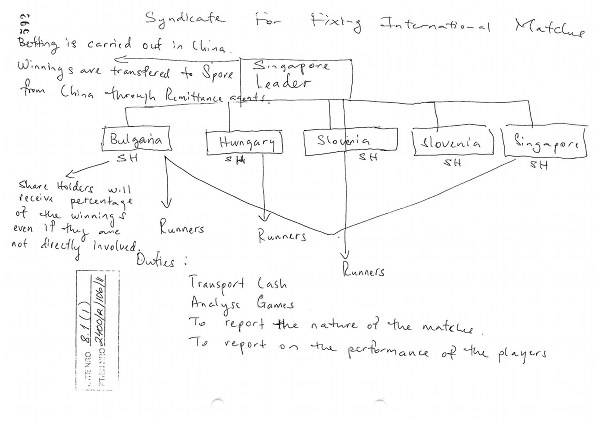 Syndicate For Fixing International Matches
Betting is carried out in China.
Winnings are transfered to Spore
from China through Remittance agents.
Singapore
Leader
Bulgaria
SH
Hungary
SH
Slovenia
SH
Slovenia
SH
Singapore
SH
Share Holders will
receive percentage
of the winnings
even if they are
not directly involved.
Runners
Runners
Runners
Duties :
Transport Cash
Analyse Games
To report the nature of the matches.
To report on the performance of the players
8.1(1)
2400/R/106/8